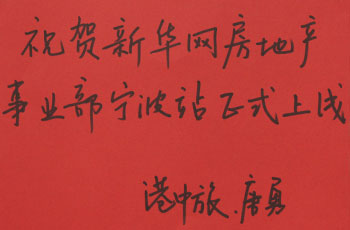 祝贺新华网房地产
事业部宁波站正式上线
港中旅、唐勇